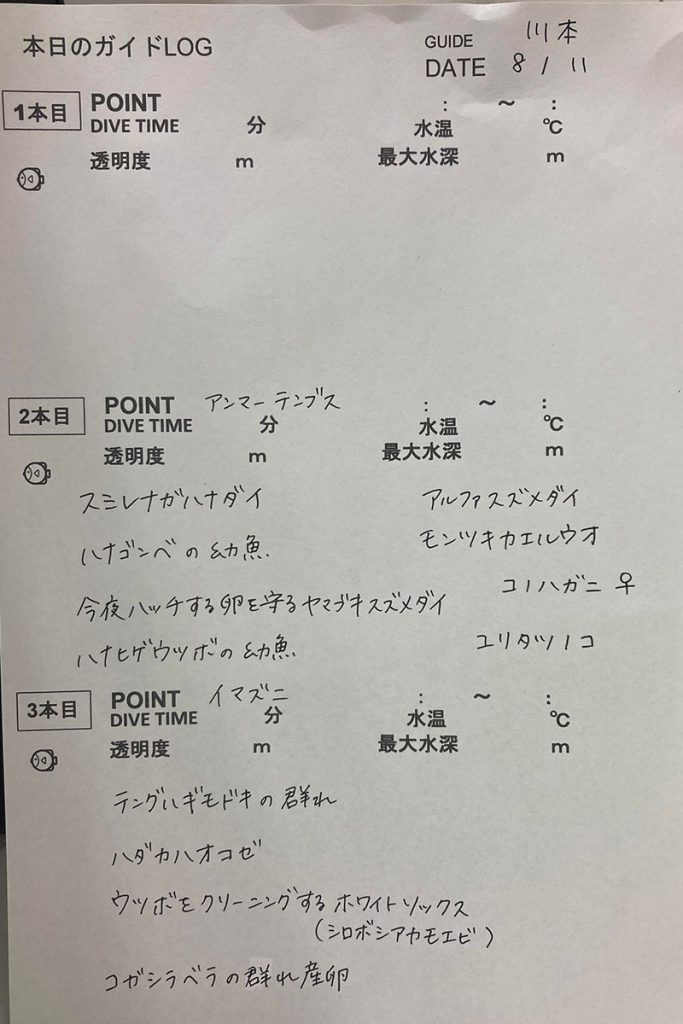 本日のガイドLOG
GUIDE 川本
DATE 8 / 11
1本目 POINT : ～ :
DIVE TIME 分 水温 ℃
透明度 m 最大水深 m
2本目 POINT アンマーテンブス : ～ :
DIVE TIME 分 水温 ℃
透明度 m 最大水深 m
スミレナガハナダイ アルファスズメダイ
ハナゴンベの幼魚 モンツキカエルウオ
今夜ハッチする卵を守るヤマブキスズメダイ コノハガニ ♀
ハナヒゲウツボの幼魚 ユリタツノコ
3本目 POINT イマズニ : ～ :
DIVE TIME 分 水温 ℃
透明度 m 最大水深 m
テングハギモドキの群れ
ハダカハオコゼ
ウツボをクリーニングするホワイトソックス
(シロボシアカモエビ)
コガシラベラの群れ産卵